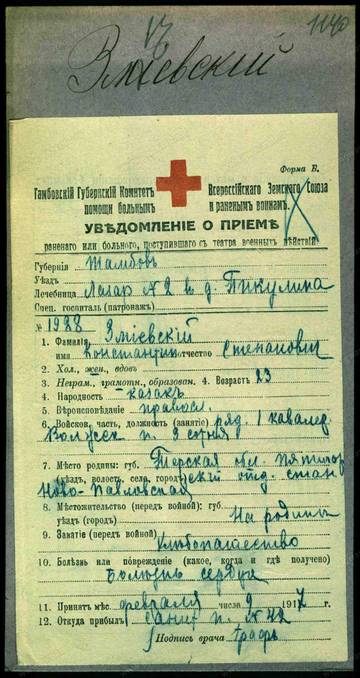 1140
Зміевскій
Форма Б.
Тамбовскій Губернскій Комитетъ Всероссійскаго Земскаго Союза
помощи больнымъ и раненымъ воинамъ.
УВѢДОМЛЕНІЕ О ПРІЕМѢ
раненаго или больного, поступившаго съ театра военныхъ дѣйствій
Губернія Тамбовъ
Уѣздъ
Лечебница Лазар. № 2 в д. Пикулина
Спец. госпиталь (патронажъ)
№ 1988
1. Фамилія Зміевскій
имя Константинъ отчество Степановичъ
2. Хол., жен., вдовъ
3. Неграм., грамотн., образован. 4. Возрастъ 23
4. Народность казакъ
5. Вѣроисповѣданіе правосл.
6. Войсков. часть, должность (занятіе) ряд. 1 кавалер.
Волжск. п. 2 сотня
7. Мѣсто родины: губ. Терская обл. Пятигор
(уѣздъ, волость, село, городъ) скій отд. стан
Ново-Павловская
8. Мѣстожительство (передъ войной): губ.
уѣздъ (городъ) На родинѣ
9. Занятіе (передъ войной)
Хлѣбопашество
10. Болѣзнь или поврежденіе (какое, когда и гдѣ получено)
Болѣзнь сердца
11. Принятъ мѣс. февраля число 9 1917 г.
12. Откуда прибылъ Санит. п. № 42
Подпись врача